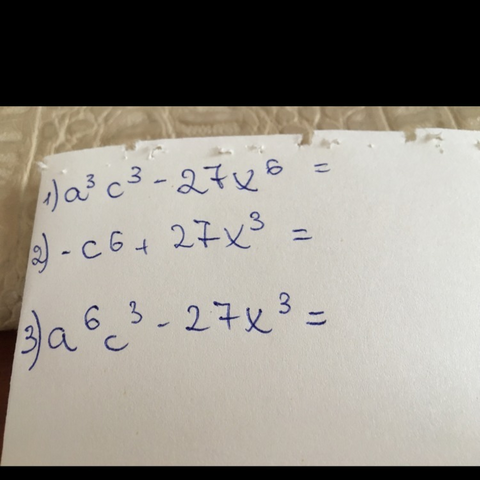 1) a³ c³ - 27x⁶ =
2) - c⁶ + 27x³ =
3) a⁶ c³ - 27x³ =